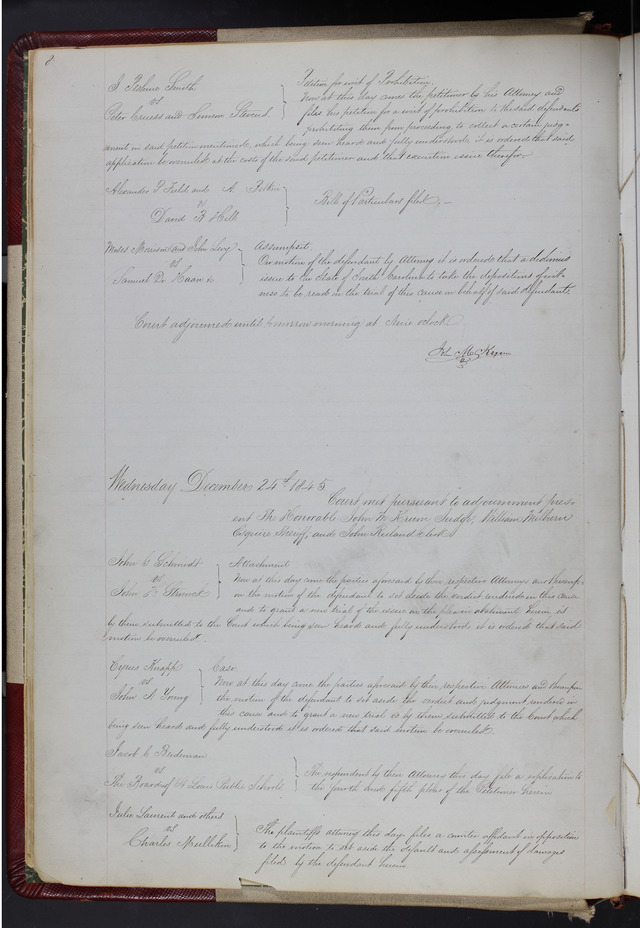 8
J Perkins Smith
vs
Peter and Simeon Stevens
Petition for writ of Prohibition
Now at this day comes the petitioner by his Attorney and
files his petition for a writ of prohibition to the said defendants
prohibiting them from proceeding to collect a certain judg-
ment in said petition mentioned, which being seen heard and fully understood, it is ordered that said
application be overruled at the costs of the said petitioner and that execution issue therefor.
Alexander P Field and A
vs
David B Hill
Bill of Particulars filed, —
Moses Morrison and John Levy
vs
Samuel De Haan
Assumpsit.
On motion of the defendant by Attorney it is ordered that a dedimus
issue to the State of South Carolina to take the depositions of wit-
ness to be read in the trial of this cause in behalf of said defendant.
Court adjourned until tomorrow morning at Nine o'clock
Jno M Krum
Wednesday December 24th 1845
Court met pursuant to adjournment pres-
ent The Honorable John M Krum Judge, William Milburn
Esquire Sheriff, and John Ruland clerk
John C Schmidt
vs
John F Strunck
Attachment
Now at this day came the parties aforesaid by their respective Attorneys and thereupon
on the motion of the defendant to set aside the verdict rendered in this cause
and to grant a new trial of the issue on the plea in abatement herein is
by them submitted to the Court which being seen heard and fully understood it is ordered that said
motion be overruled.
Cyrus Knapp
vs
John A Young
Case
Now at this day came the parties aforesaid by their respective Attornies and thereupon
the motion of the defendant to set aside the verdict and judgment rendered in
this cause and to grant a new trial is by them submitted to the Court which
being seen heard and fully understood it is ordered that said motion be overruled.
Jacob C
vs
The Board of St Louis Public Schools
The respondent by their Attorney this day file a replication to
the fourth and fifth pleas of the Petitioner herein
Julie Laurent and others
vs
Charles Mullikin
The plaintiffs attorney this day files a counter affidavit in opposition
to the motion to set aside the default and assessment of damages
filed by the defendant herein